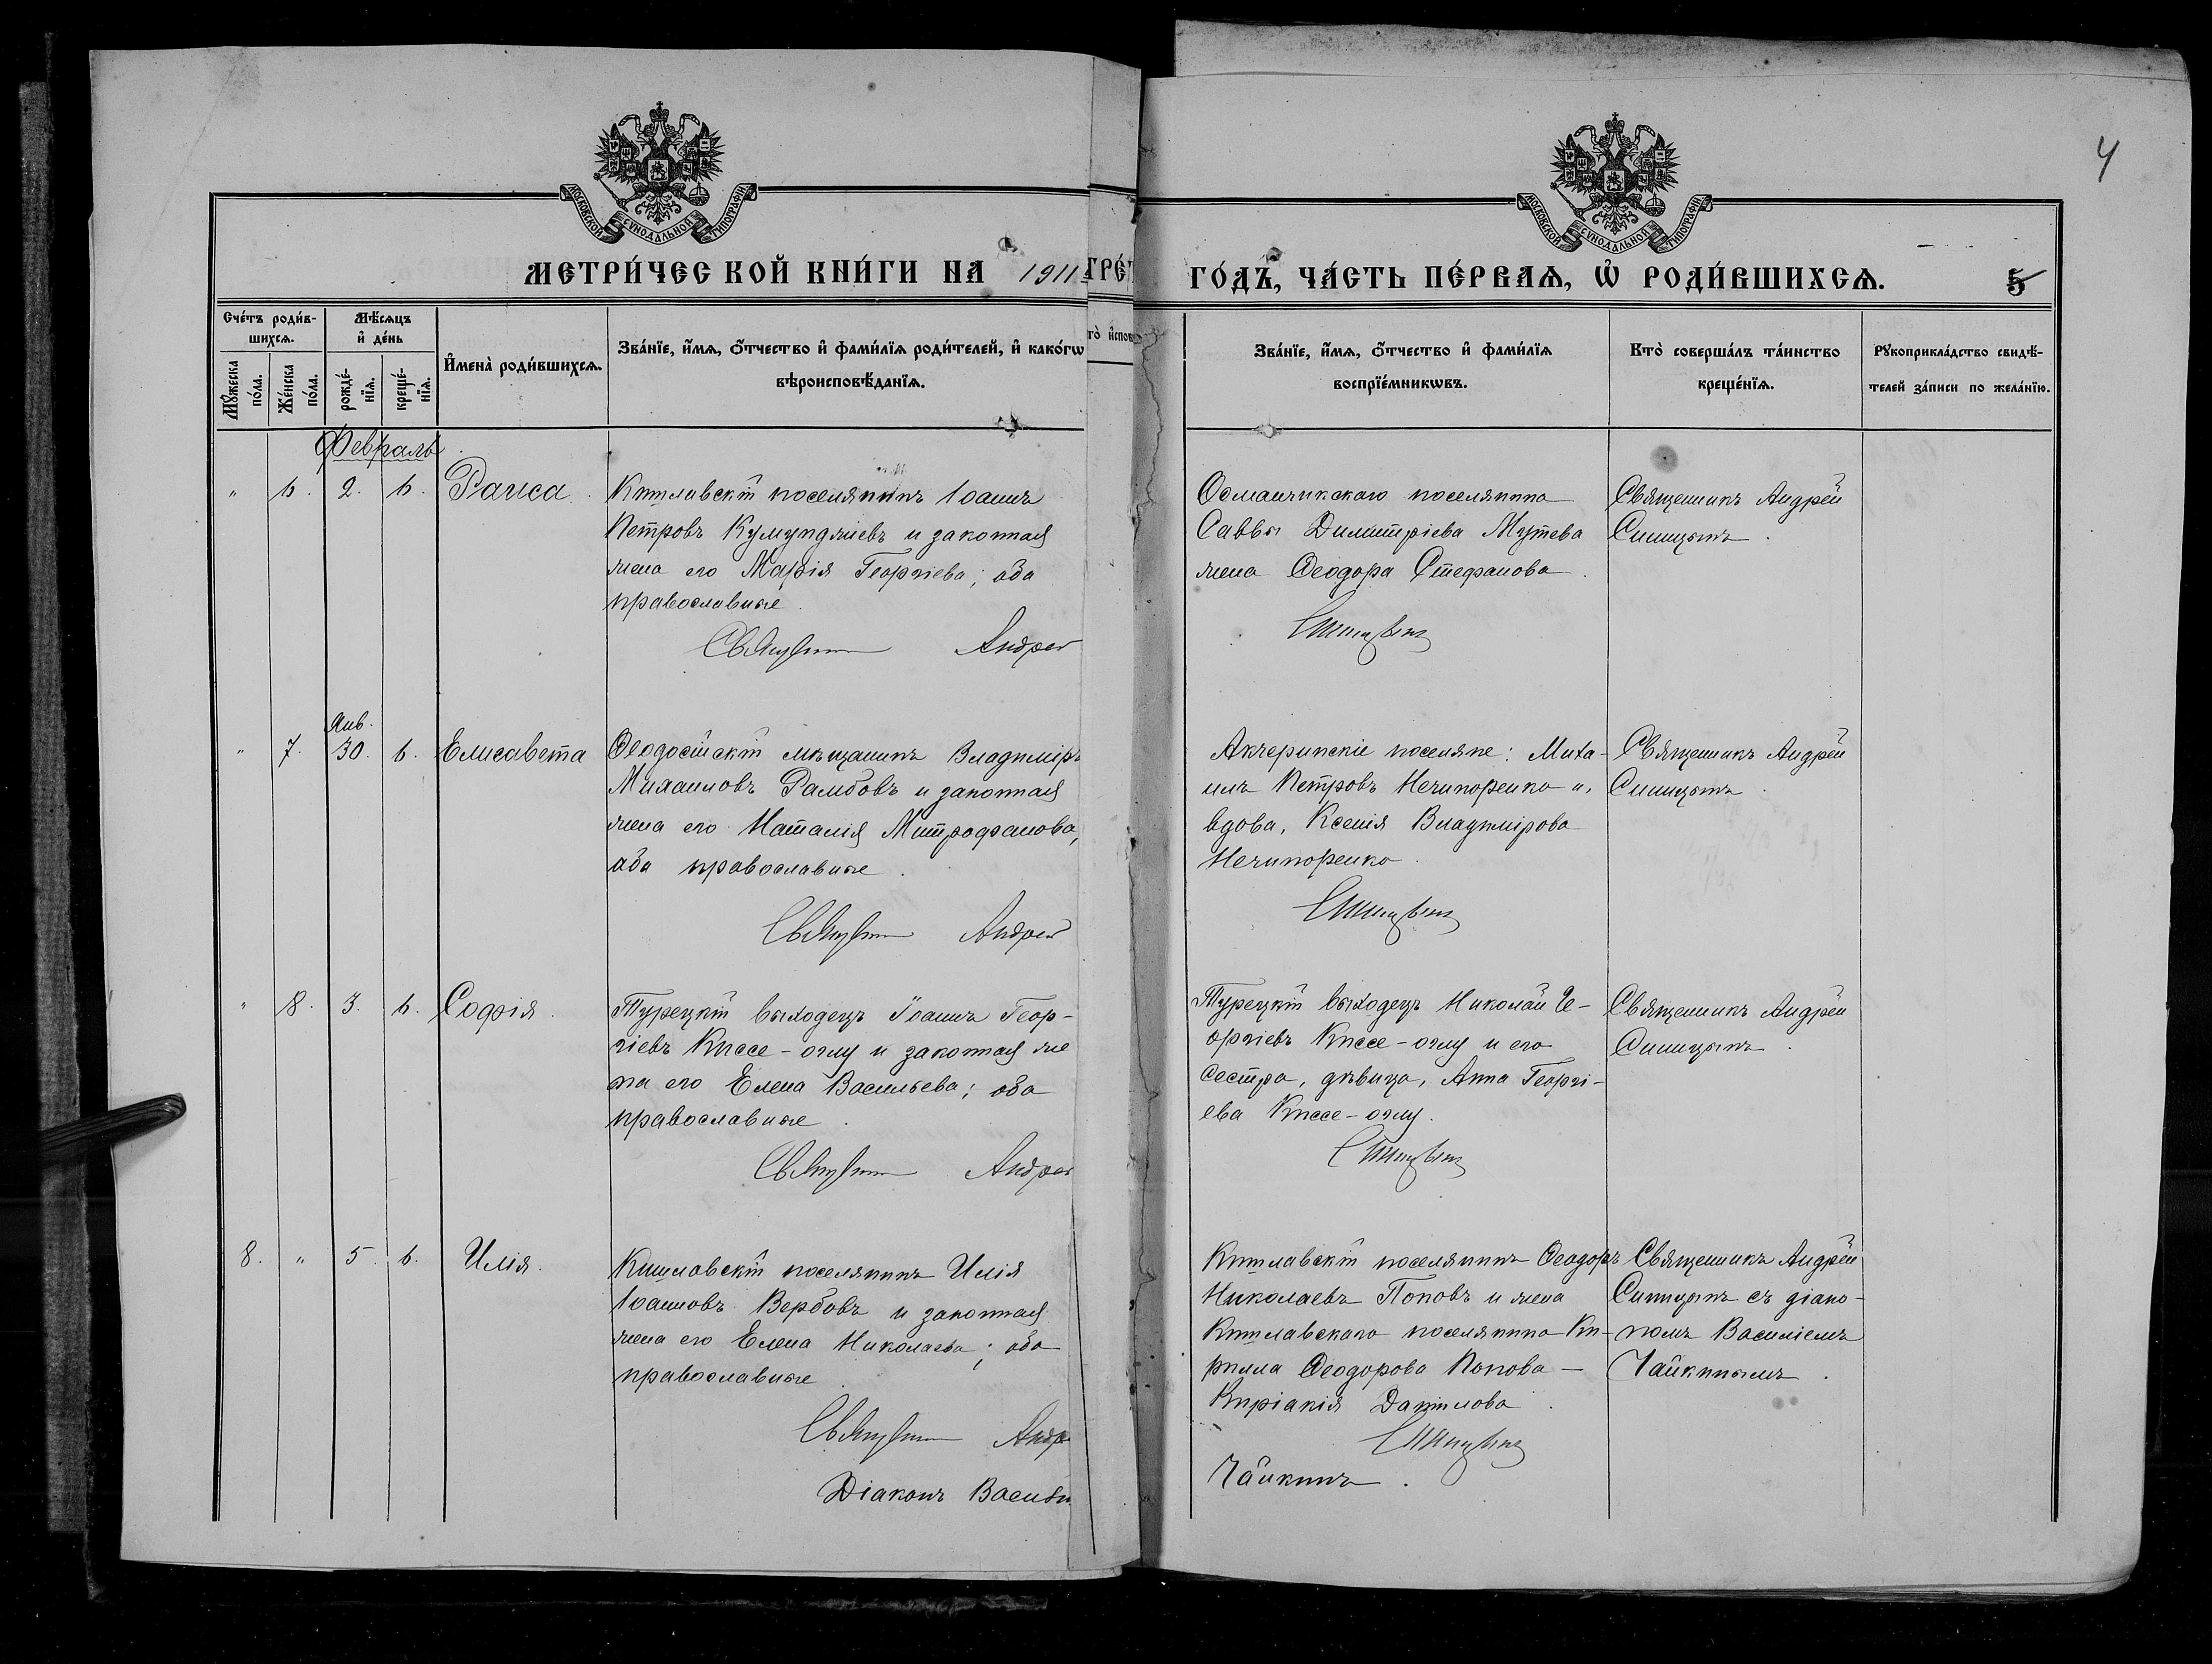 4
МОСКОВСКОЙ СѴНОДАЛЬНОЙ ТИПОГРАФІИ
МОСКОВСКОЙ СѴНОДАЛЬНОЙ ТИПОГРАФІИ
МЕТРИ́ЧЕСКОЙ КНИ́ГИ НА 1911
ГО́ДЪ, ЧА́СТЬ ПЕ́РВАѦ, Ѽ РОДИ́ВШИХСѦ.
5
Сче́тъ роди́в-
шихсѧ.
Мꙋ́жеска по́ла.
Же́нска по́ла.
Мѣ́сѧцъ
и҆ де́нь
рожде́-
нїѧ.
креще́-
нїѧ.
И҆мена̀ роди́вшихсѧ.
Зва́нїе, и҆́мѧ, ѻ҆́тчество и҆ фами́лїѧ роди́телей, и҆ како́гѡ
вѣроисповѣ́данїѧ.
Зва́нїе, и҆́мѧ, ѻ҆́тчество и҆ фами́лїѧ
воспрїе́мникѡвъ.
Кто̀ соверша́лъ та́инство
креще́нїѧ.
Рꙋкоприкла́дство свидѣ́-
телей за́писи по жела́нїю.
Февраль
" 6. 2. 6. Раиса.
Кишлавскій поселянинъ Іоаннъ
Петровъ Кумунджіевъ и законная
жена его Марія Георгіева; оба
православные.
Священникъ Андрей
Османчикскаго поселянина
Саввы Димитріева Мутева
жена Ѳеодора Стефанова.
Синицынъ
Священникъ Андрей
Синицынъ.
Янв.
" 7. 30. 6. Елисавета
Ѳеодосійскій мѣщанинъ Владиміръ
Михаиловъ Рамбовъ и законная
жена его Наталія Митрофанова,
оба православные.
Священникъ Андрей
Акчеринскіе поселяне: Миха-
илъ Петровъ Нечипоренко и,
вдова, Ксенія Владимірова
Нечипоренко.
Синицынъ
Священникъ Андрей
Синицынъ.
" 8. 3. 6. Софія.
Турецкій выходецъ Іоаннъ Геор-
гіевъ Кіссе-оглу и законная же
на его Елена Васильева; оба
православные.
Священникъ Андрей
Турецкій выходецъ Николай Ге-
оргіевъ Кіссе-оглу и его
сестра, дѣвица, Анна Георгі-
ева Кіссе-оглу.
Синицынъ
Священникъ Андрей
Синицынъ.
8. " 5. 6. Илія.
Кишлавскій поселянинъ Илія
Іоанновъ Вербовъ и законная
жена его Елена Николаева; оба
православные.
Священникъ Андр
Діаконъ Васил
Кишлавскій поселянинъ Ѳеодоръ
Николаевъ Поповъ и жена
Кишлавскаго поселянина Ки-
рилла Ѳеодорова Попова –
Киріакія Даніилова.
Синицынъ
Чайкинъ.
Священникъ Андрей
Синицынъ съ діако-
номъ Василіемъ
Чайкинымъ.